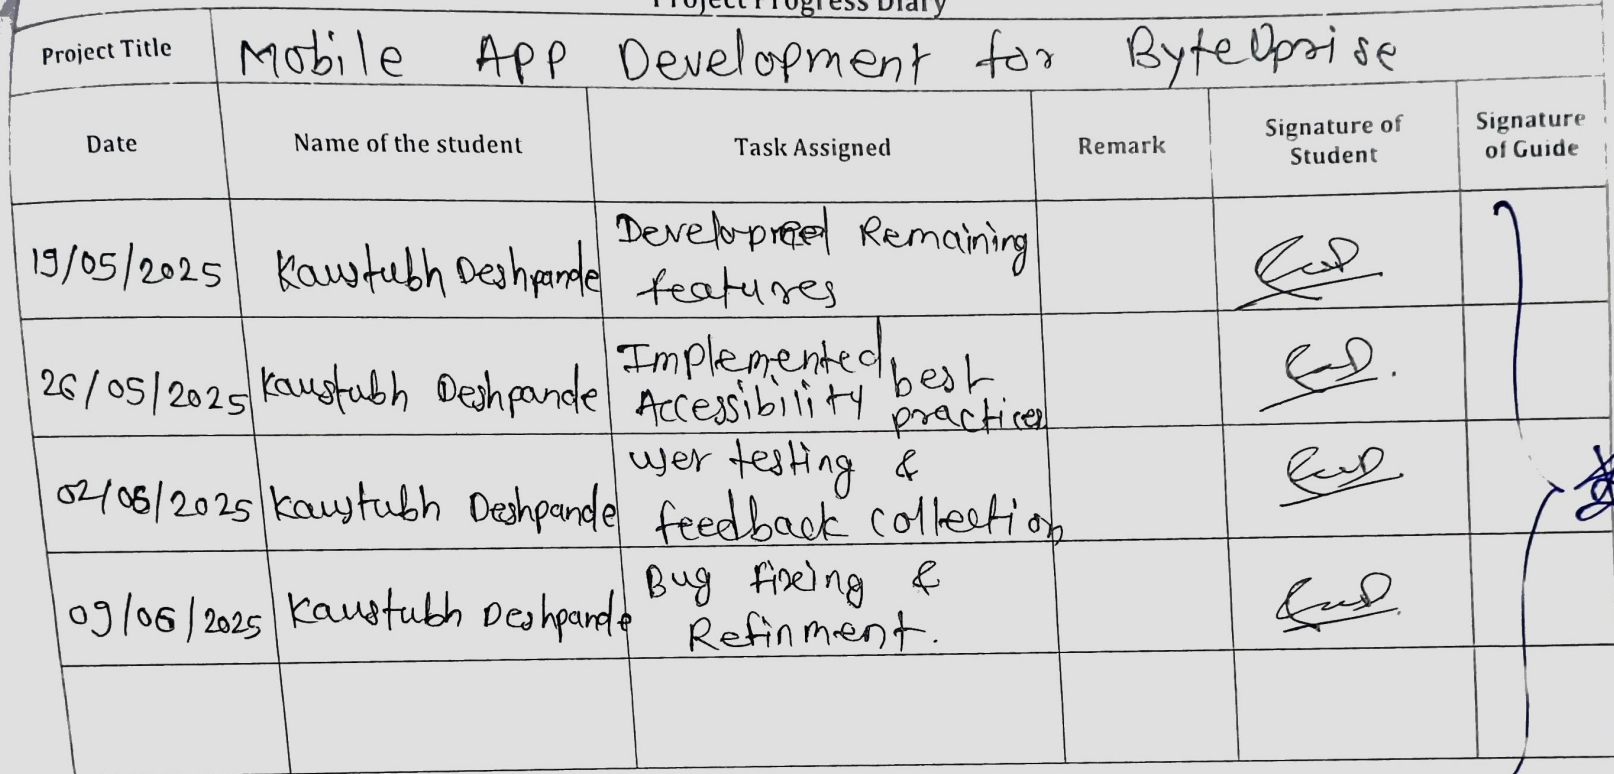 Project Progress Diary
Project Title Mobile App Development for ByteUprise
Date Name of the student Task Assigned Remark Signature of Student Signature of Guide
19/05/2025 Kaustubh Deshpande Developed Remaining
features
26/05/2025 Kaustubh Deshpande Implemented best
Accessibility practices
02/06/2025 Kaustubh Deshpande User testing &
feedback collection
09/06/2025 Kaustubh Deshpande Bug fixing &
Refinment.